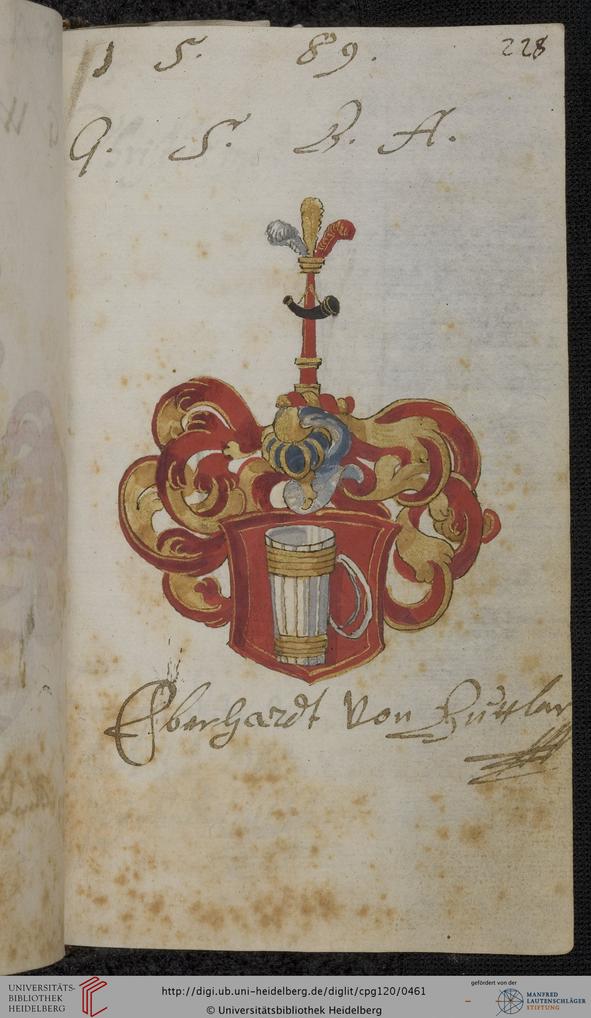 1 5. 89. 228
G. S. B. A.
Eberhardt Von Buttlar
UNIVERSITÄTS-
BIBLIOTHEK
HEIDELBERG
http://digi.ub.uni-heidelberg.de/diglit/cpg120/0461
© Universitätsbibliothek Heidelberg
gefördert von der
MANFRED
LAUTENSCHLÄGER
STIFTUNG